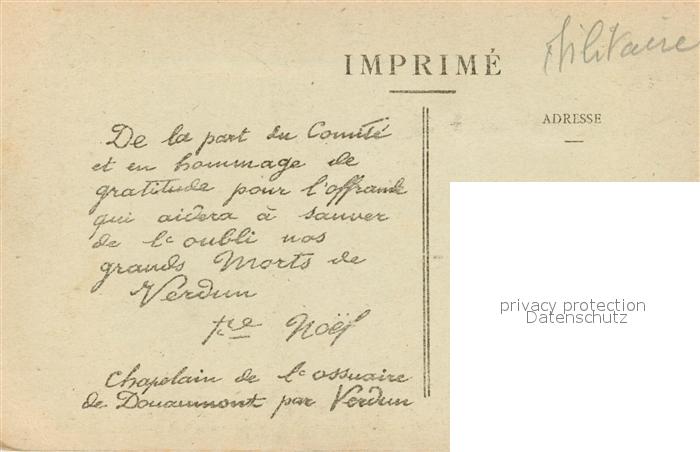 Militaire
IMPRIMÉ
ADRESSE
De la part du Comité
et en hommage de
gratitude pour l'offrande
qui aidera à sauver
de l'oubli nos
grands Morts de
Verdun
Noël
Chapelain de l'ossuaire
de Douaumont par Verdun
privacy protection
Datenschutz